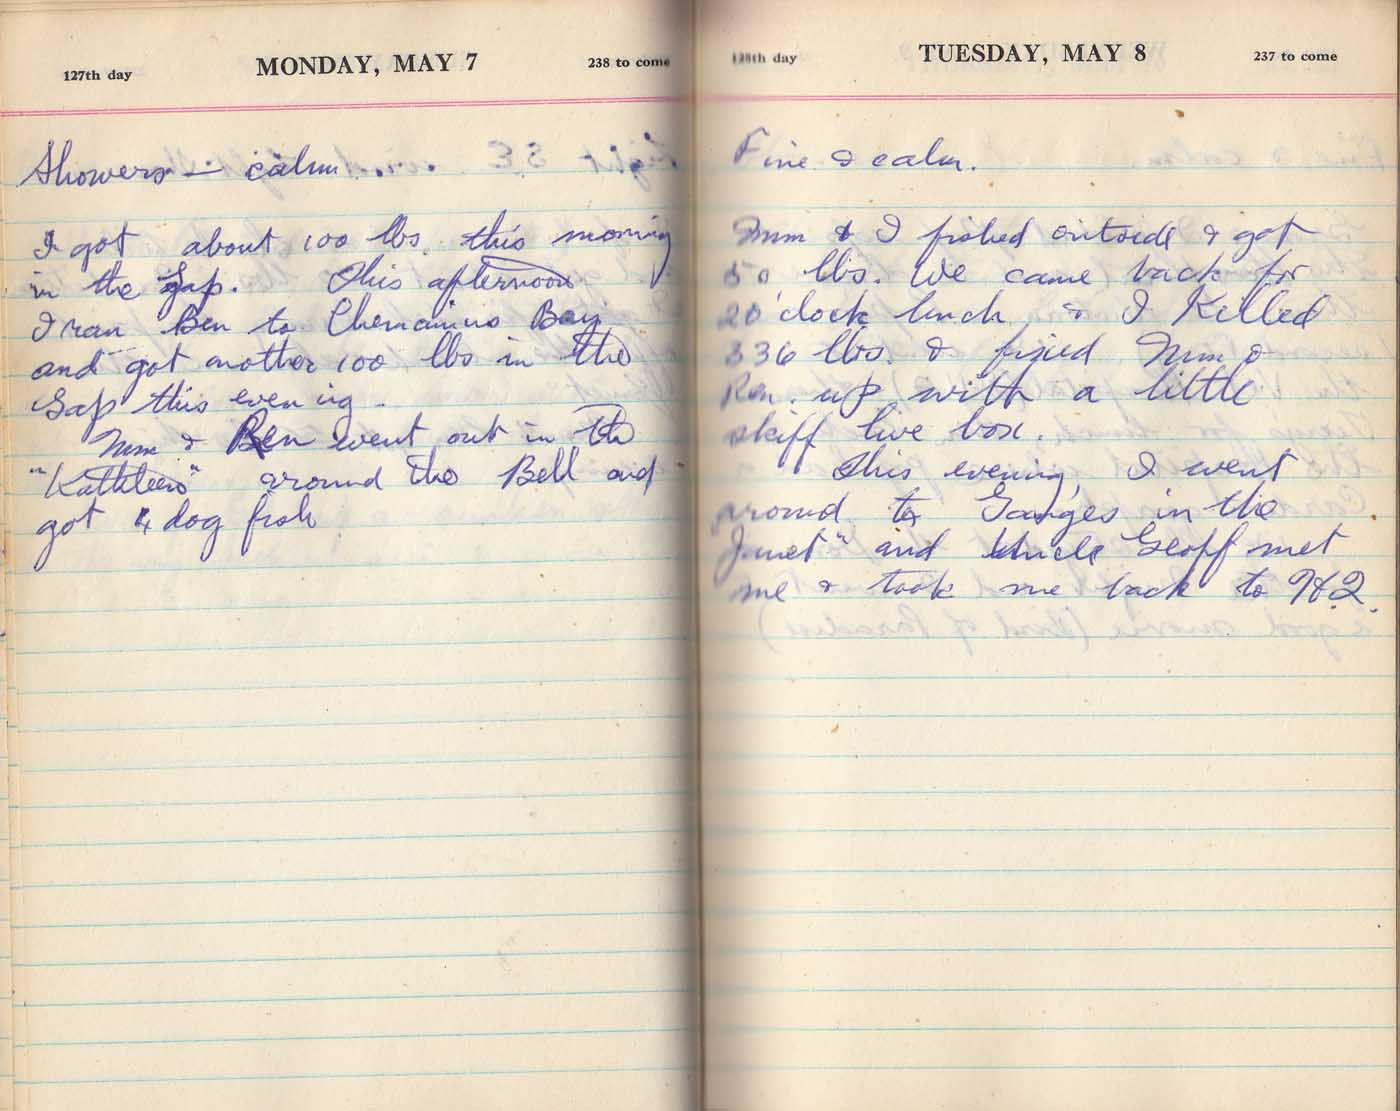 127th day MONDAY, MAY 7 238 to come
Showers — calm.
I got about 100 lbs. this morning
in the Gap. This afternoon
I ran Ben to Chemainus Bay
and got another 100 lbs in the
Gap this evening.
Mum & Ben went out in the
"Kathleen" around the Bell and
got 4 dog fish
128th day TUESDAY, MAY 8 237 to come
Fine & calm.
Mum & I fished outside & got
50 lbs. We came back for
2 o'clock lunch & I Killed
336 lbs. & fixed Mum &
Ben. up with a little
skiff live box.
This evening, I went
around to Ganges in the
Janet" and Uncle Geoff met
me & took me back to H.Q.